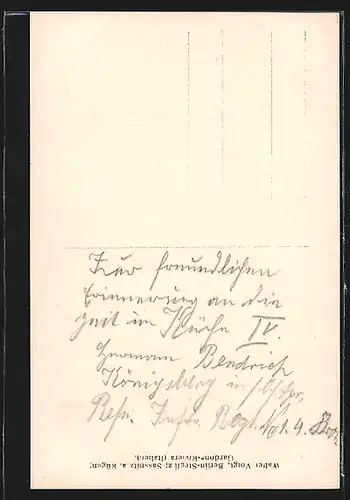 Zur freundlichen
Erinnerung an die
Zeit in Küche IV.
Hermann Bendrich
Königsberg in
Walter Voigt, Berlin-Steglitz; Sassnitz a. Rügen;
Gardone-Riviera (Italien).